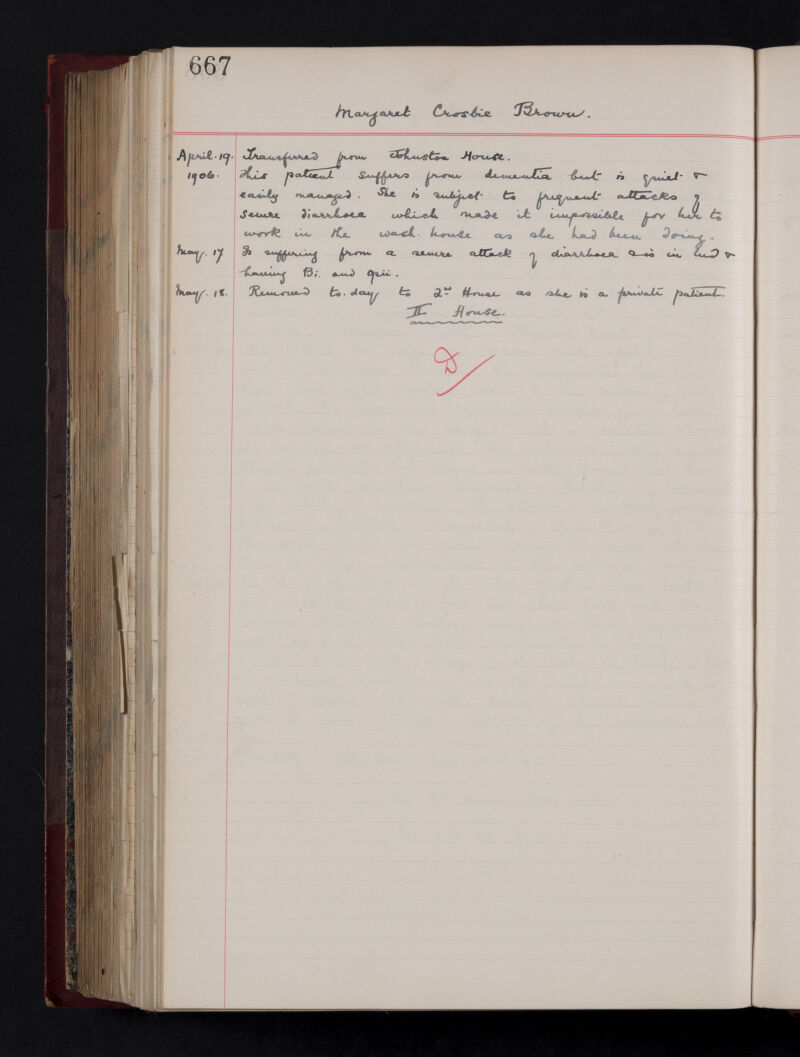 667
Margaret Crosbie Brown.
April. 19. Transferred from Johnston House.
1906. This patient suffers from dementia but is quiet &
easily managed. She is subject to frequent attacks of
severe diarrhoea which made it impossible for her to
work in the wash-house as she had been doing.
May. 17 Is suffering from a severe attack of diarrhoea & is in bed &
having Bi. and Opii.
May. 18. Removed to-day to 2nd House as she is a private patient.
II House.
D